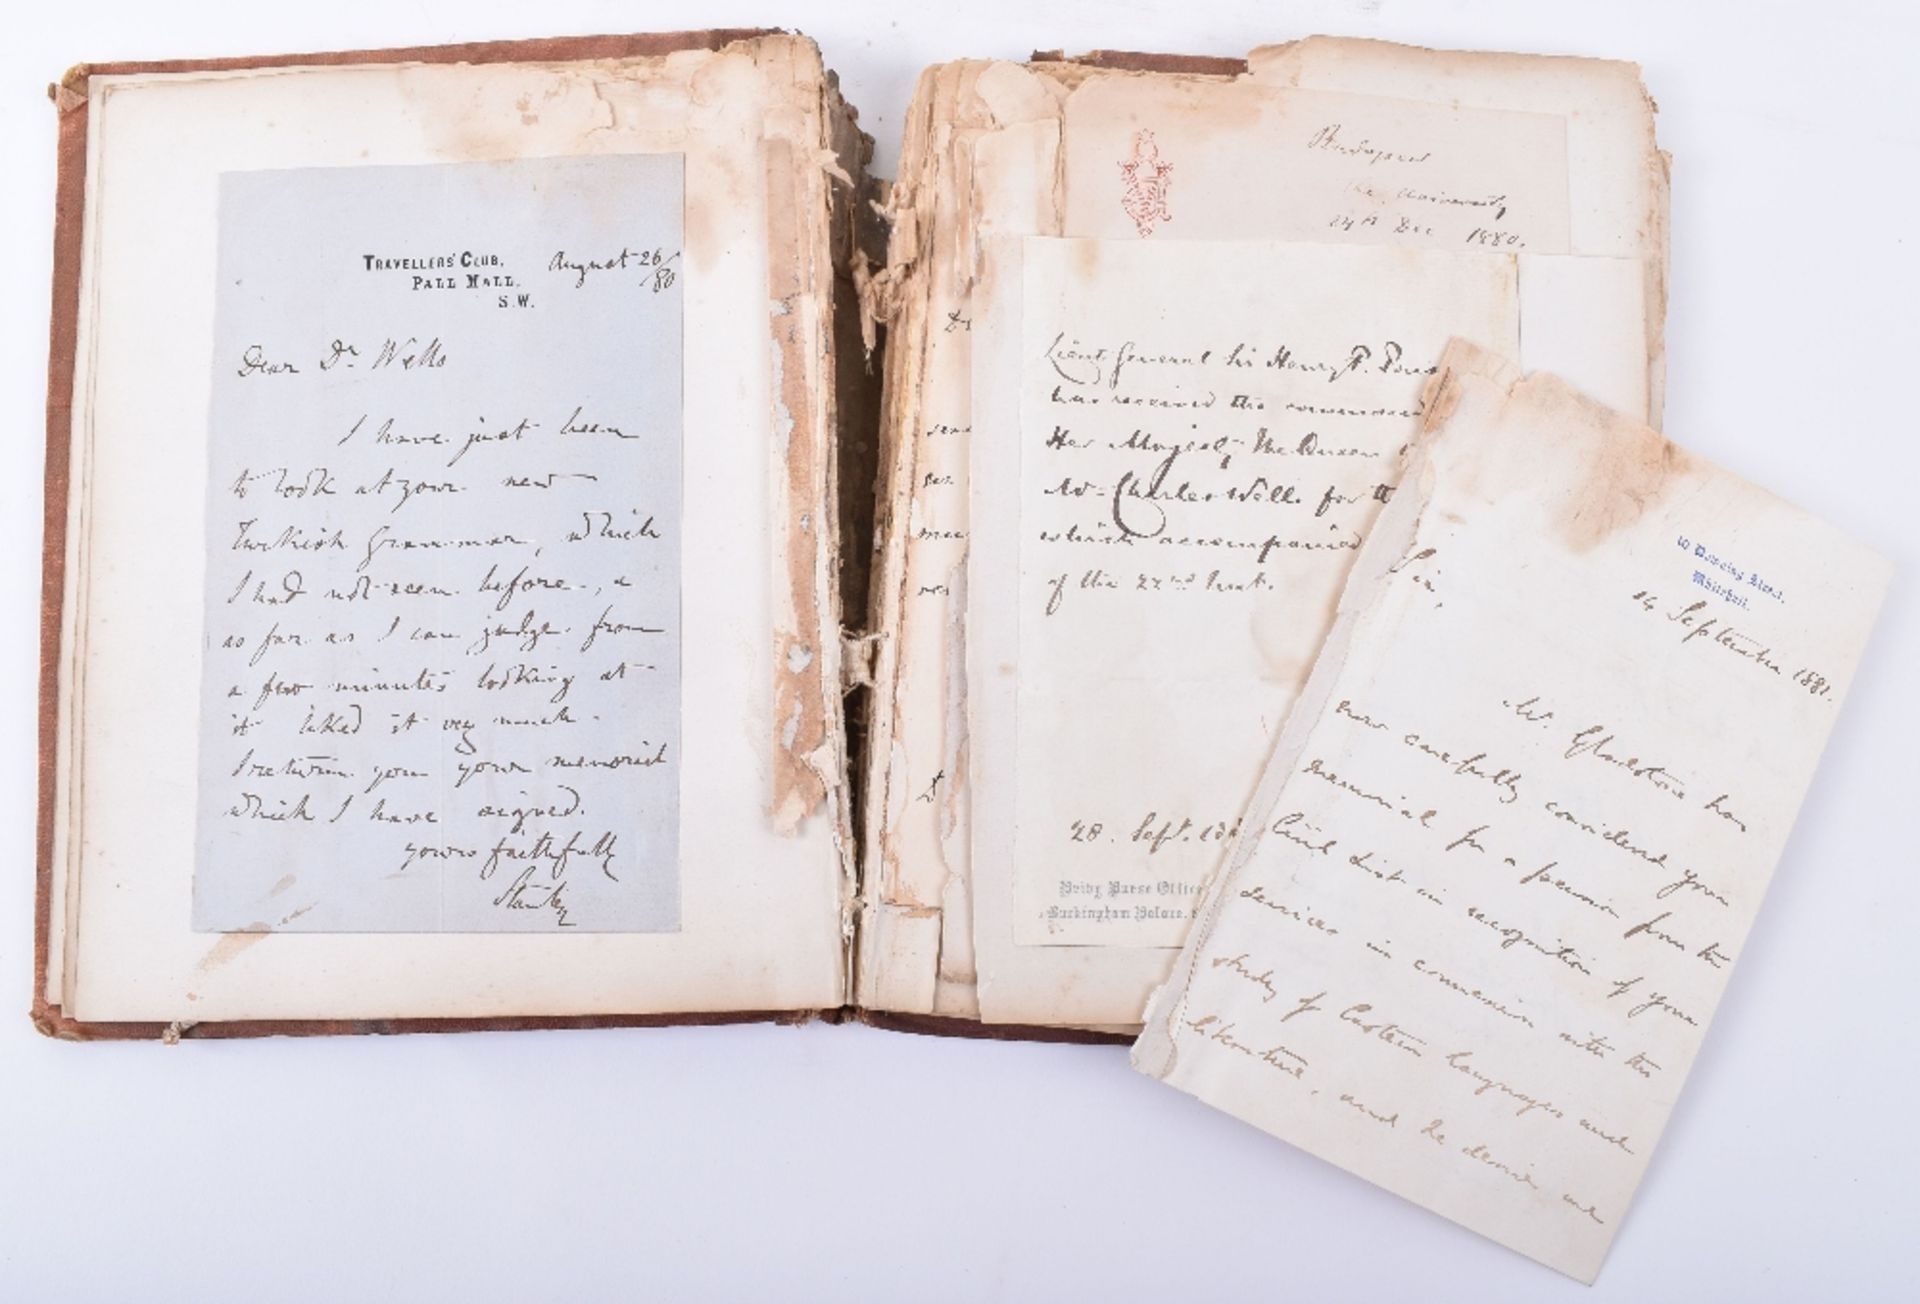 TRAVELLERS' CLUB,
PALL MALL.
S.W.
August 26/80
Dear Dr Wells
I have just been
to look at your new
Turkish Grammar, which
I had not seen before, &
as far as I can judge from
a few minutes looking at
it liked it very much.
I return you your memorial
which I have signed.
yours faithfully
Stanley
Budapest
The University
24th Dec 1880.
Lieut General Sir Henry F.
has received the command
Her Majesty The Queen
Mr Charles Wells for th
which accompanied
of the 22nd Inst.
28. Sept. 18
Privy Purse Office
Buckingham Palace.
10 Downing Street,
Whitehall.
14 September 1881.
Sir,
Mr. Gladstone has
now carefully considered your
memorial for a pension from the
Civil List in recognition of your
services in connexion with the
study of Eastern languages and
literature, and he desires me